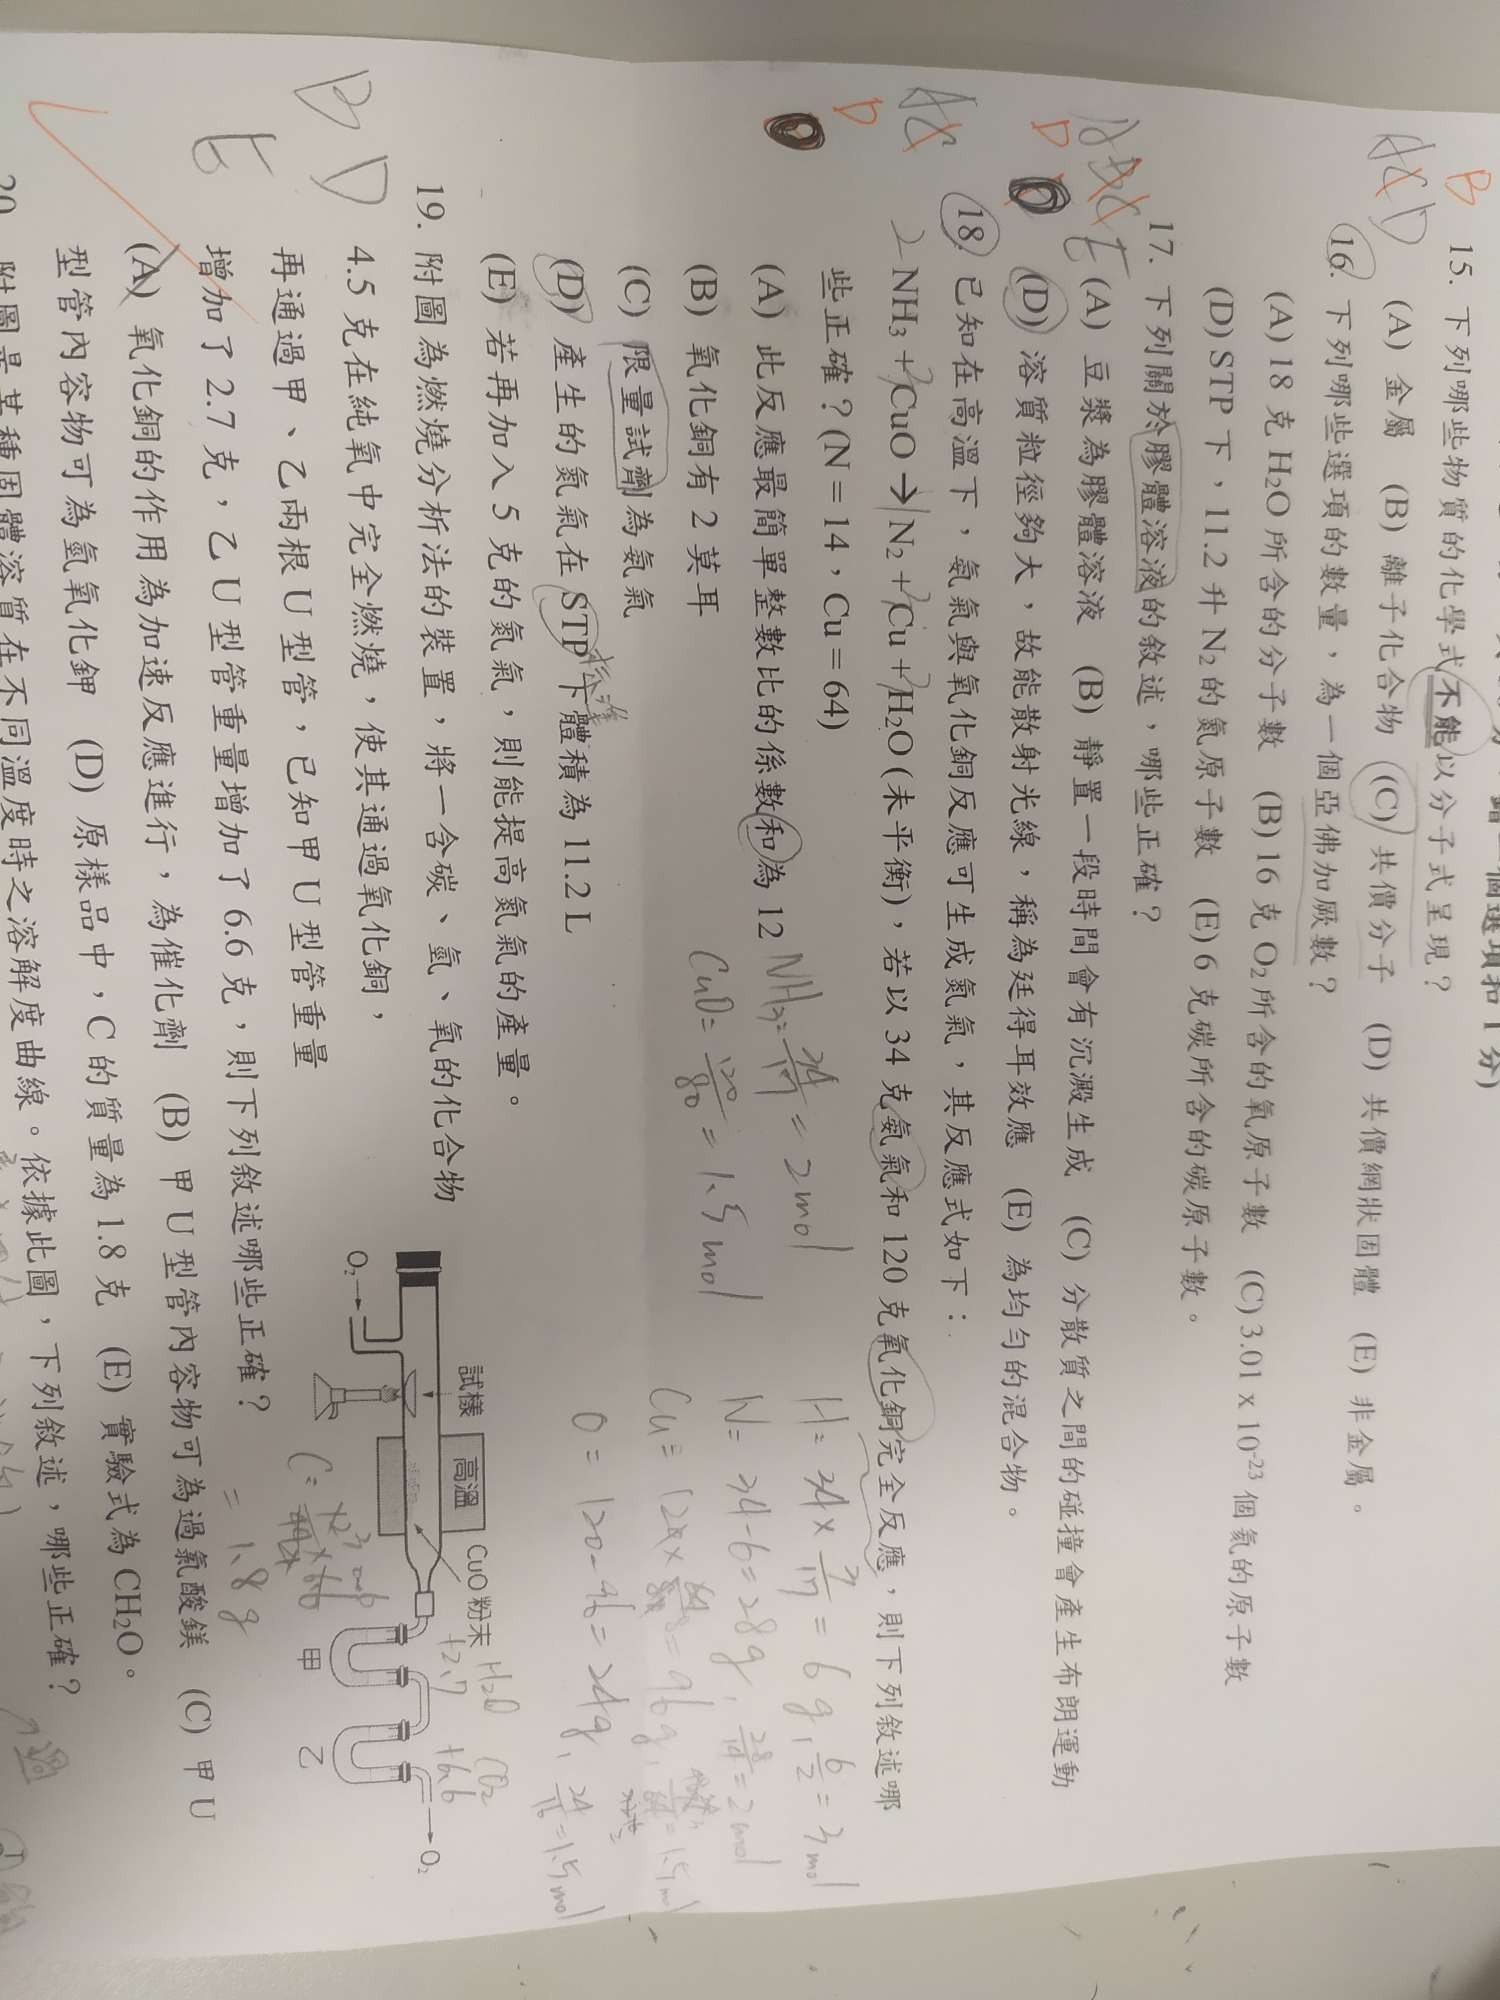 B
15. 下列哪些物質的化學式不能以分子式呈現？
(A) 金屬 (B) 離子化合物 (C) 共價分子 (D) 共價網狀固體 (E) 非金屬。
16. 下列哪些選項的數量，為一個亞佛加厥數？
(A) 18 克 H₂O 所含的分子數 (B) 16 克 O₂ 所含的氧原子數 (C) 3.01 x 10⁻²³ 個氦的原子數
(D) STP 下，11.2 升 N₂ 的氮原子數 (E) 6 克碳所含的碳原子數。
17. 下列關於膠體溶液的敘述，哪些正確？
(A) 豆漿為膠體溶液 (B) 靜置一段時間會有沉澱生成 (C) 分散質之間的碰撞會產生布朗運動
(D) 溶質粒徑夠大，故能散射光線，稱為廷得耳效應 (E) 為均勻的混合物。
18. 已知在高溫下，氨氣與氧化銅反應可生成氮氣，其反應式如下：
2 NH₃ + 3CuO → N₂ + 3Cu + 3H₂O (未平衡)，若以 34 克氨氣和 120 克氧化銅完全反應，則下列敘述哪
些正確？(N = 14，Cu = 64)
(A) 此反應最簡單整數比的係數和為 12
(B) 氧化銅有 2 莫耳
(C) 限量試劑為氨氣
(D) 產生的氮氣在 STP 下體積為 11.2 L
(E) 若再加入 5 克的氮氣，則能提高氮氣的產量。
NH₃ = 34/17 = 2 mol
CuO = 120/80 = 1.5 mol
H = 34 × 3/17 = 6 g, 6/2 = 3 mol
N = 34 - 6 = 28 g, 28/14 = 2 mol
O = 120 - 96 = 24 g, 24/16 = 1.5 mol
19. 附圖為燃燒分析法的裝置，將一含碳、氫、氧的化合物
4.5 克在純氧中完全燃燒，使其通過氧化銅，
再通過甲、乙兩根 U 型管，已知甲 U 型管重量
增加了 2.7 克，乙 U 型管重量增加了 6.6 克，則下列敘述哪些正確？
(A) 氧化銅的作用為加速反應進行，為催化劑 (B) 甲 U 型管內容物可為過氯酸鎂 (C) 甲 U
型管內容物可為氫氧化鉀 (D) 原樣品中，C 的質量為 1.8 克 (E) 實驗式為 CH₂O。
試樣
高溫
CuO 粉末
O₂
甲
乙
O₂
H₂O
+2.7
CO₂
+6.6
= 1.8 g
B D
E
20. 附圖是某種固體溶質在不同溫度時之溶解度曲線。依據此圖，下列敘述，哪些正確？